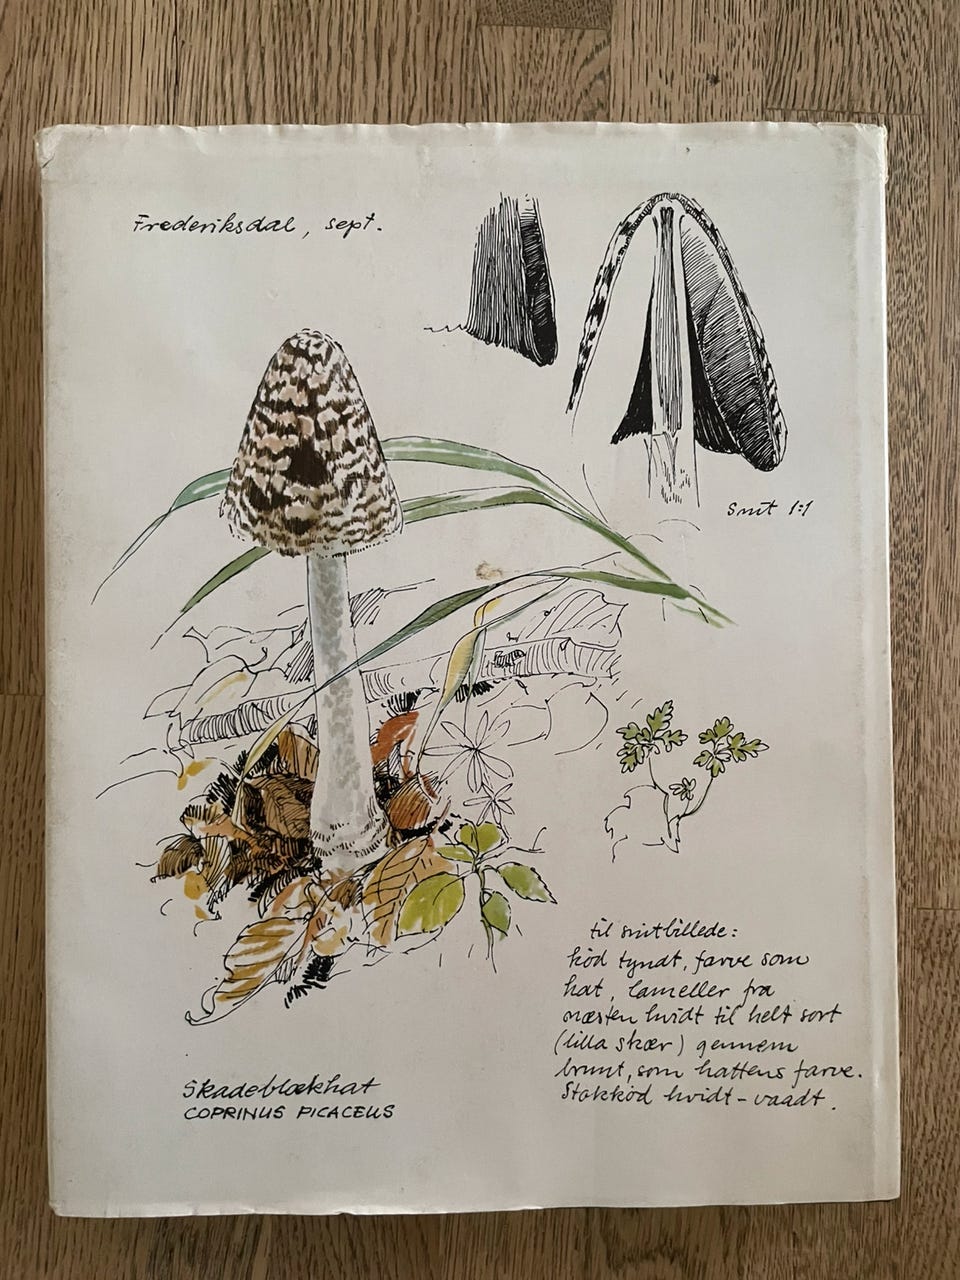 Frederiksdal, sept.
Snit 1:1
til snitbillede:
kød tyndt, farve som
hat, lameller fra
næsten hvidt til helt sort
(lilla skær) gennem
brunt, som hattens farve.
Stokkød hvidt - vaadt.
Skadeblækhat
COPRINUS PICACEUS